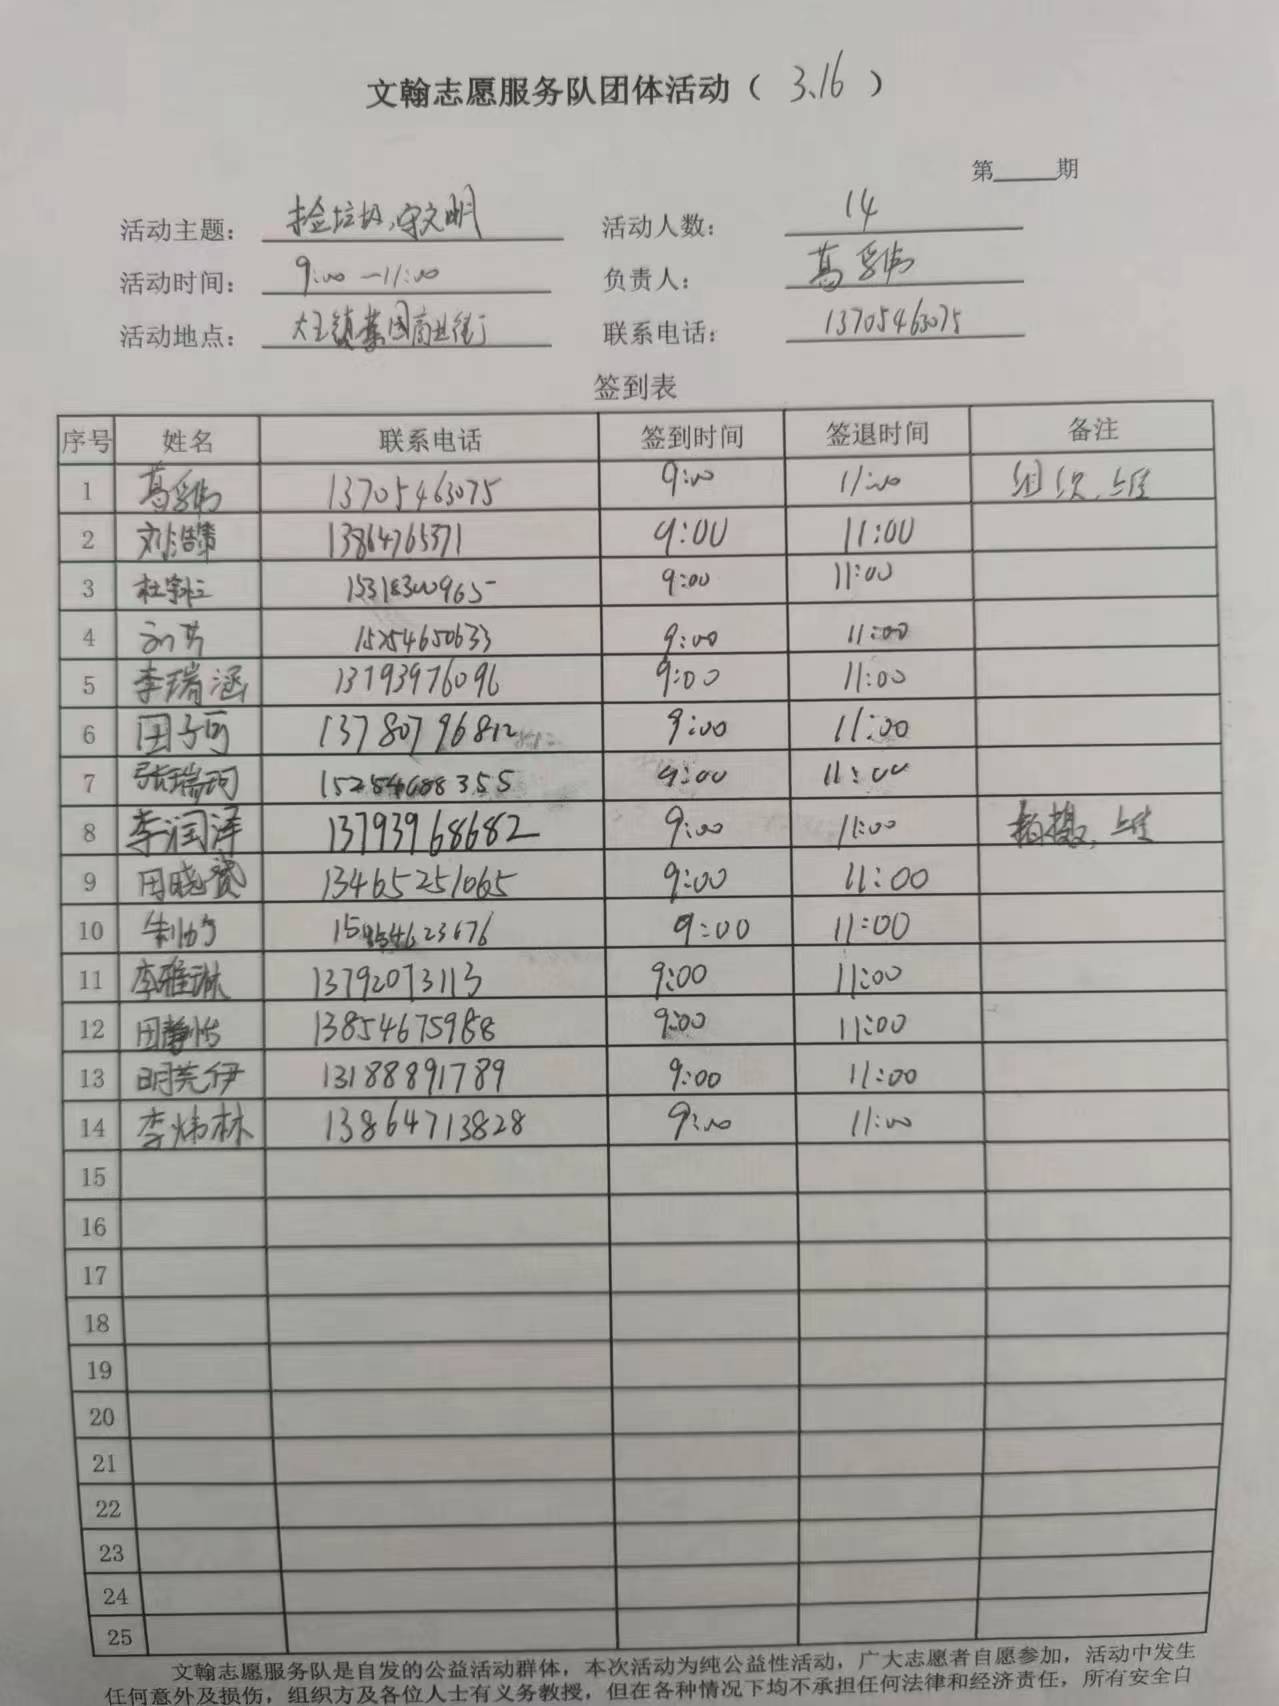 文翰志愿服务队团体活动（ 3.16 ）
第____期
活动主题： 捡垃圾、守文明 活动人数： 14
活动时间： 9:00—11:00 负责人： 葛
活动地点： 大王镇 商业街 联系电话： 13705463075
签到表
序号 姓名 联系电话 签到时间 签退时间 备注
1 葛 13705463075 9:00 11:00 组织、
2 刘浩 13864765371 9:00 11:00
3 杜 15318300965 9:00 11:00
4 刘芳 15254650633 9:00 11:00
5 李瑞涵 13793976096 9:00 11:00
6 田子可 13780796812 9:00 11:00
7 张瑞珂 9:00 11:00
8 李润泽 13793968682 9:00 11:00 拍摄、
9 田晓赟 13465251065 9:00 11:00
10 9:00 11:00
11 李雅琳 13792073113 9:00 11:00
12 田静怡 13854675988 9:00 11:00
13 明芫伊 13188891789 9:00 11:00
14 李炜林 13864713828 9:00 11:00
15
16
17
18
19
20
21
22
23
24
25
文翰志愿服务队是自发的公益活动群体，本次活动为纯公益性活动，广大志愿者自愿参加，活动中发生
任何意外及损伤，组织方及各位人士有义务教援，但在各种情况下均不承担任何法律和经济责任，所有安全自